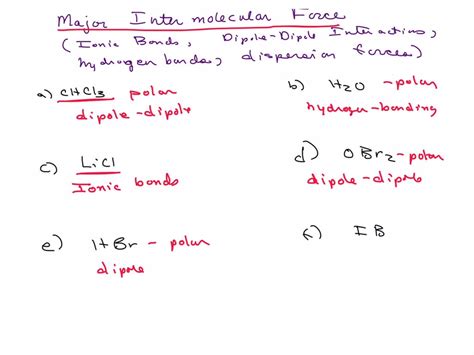 Major Intermolecular Force
(Ionic Bonds, Dipole-Dipole Interactions,
hydrogen bonds, dispersion forces)
a) CHCl3 polar
dipole-dipole
b) H2O - polar
hydrogen-bonding
c) LiCl
Ionic bonds
d) OBr2 - polar
dipole-dipole
e) HBr - polar
dipole
f) IB